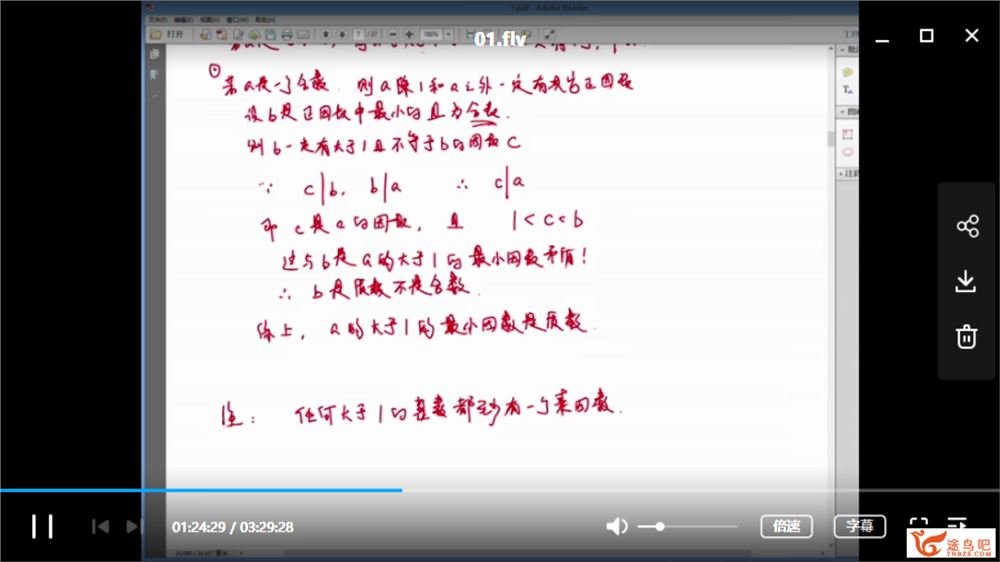 1.pdf - Adobe Reader
01.flv
文件(F) 编辑(E) 视图(V) 窗口(W) 帮助(H)
打开 7 / 37 100%
若a是一个合数. 则a除1和a之外一定有其它正因数
设b是正因数中最小的且为合数.
则b一定有大于1且不等于b的因数c
∵ c|b, b|a ∴ c|a
即 c是a的因数, 且 1<c<b
这与b是a的大于1的最小因数矛盾!
∴ b是质数不是合数.
综上, a的大于1的最小因数是质数.
注: 任何大于1的整数都至少有一个素因数.
01:24:29 / 03:29:28
倍速
字幕
途鸟吧
TNBZS.COM